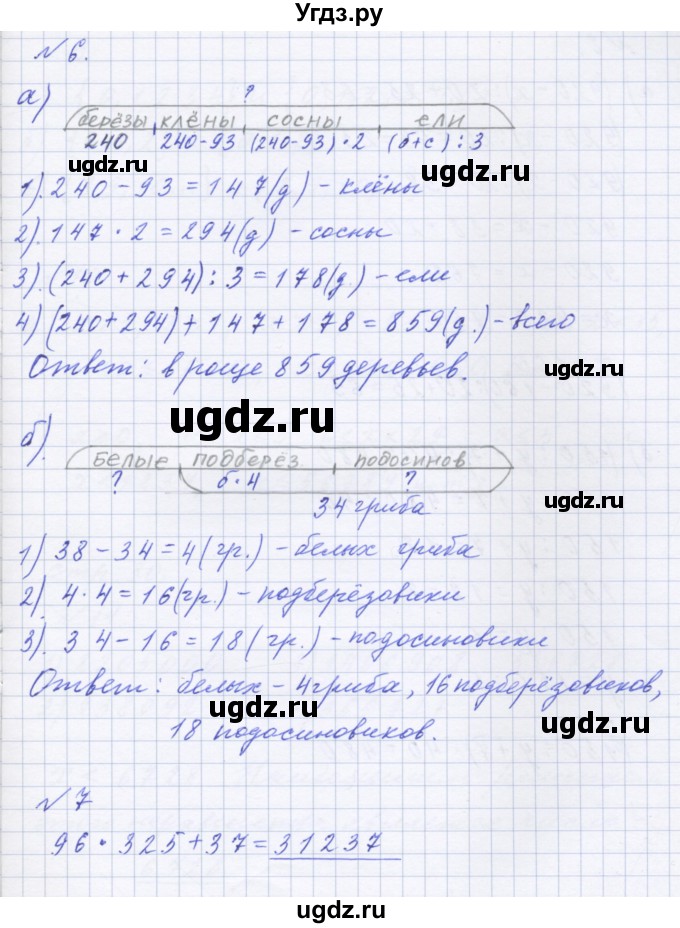 Угдз.ру
№ 6.
а) ?
берёзы клёны сосны ели
240 240-93 (240-93)·2 (б+с):3
ugdz.ru ugdz.ru
1). 240 - 93 = 147(д) - клёны
2). 147 · 2 = 294(д) - сосны
3). (240 + 294) : 3 = 178(д) - ели
4) (240+294) + 147 + 178 = 859(д.) - всего
Ответ: в роще 859 деревьев.
ugdz.ru
ugdz.ru
б).
белые подберёз подосинов
? б·4 ?
34 гриба
1) 38 - 34 = 4 (гр.) - белых гриба
2). 4·4 = 16(гр.) - подберёзовики
3). 34 - 16 = 18 (гр.) - подосиновики
Ответ: белых - 4 гриба, 16 подберёзовиков,
ugdz.ru ugdz.ru
18 подосиновиков.
№ 7
96 · 325 + 37 = 31237
ugdz.ru
ugdz.ru